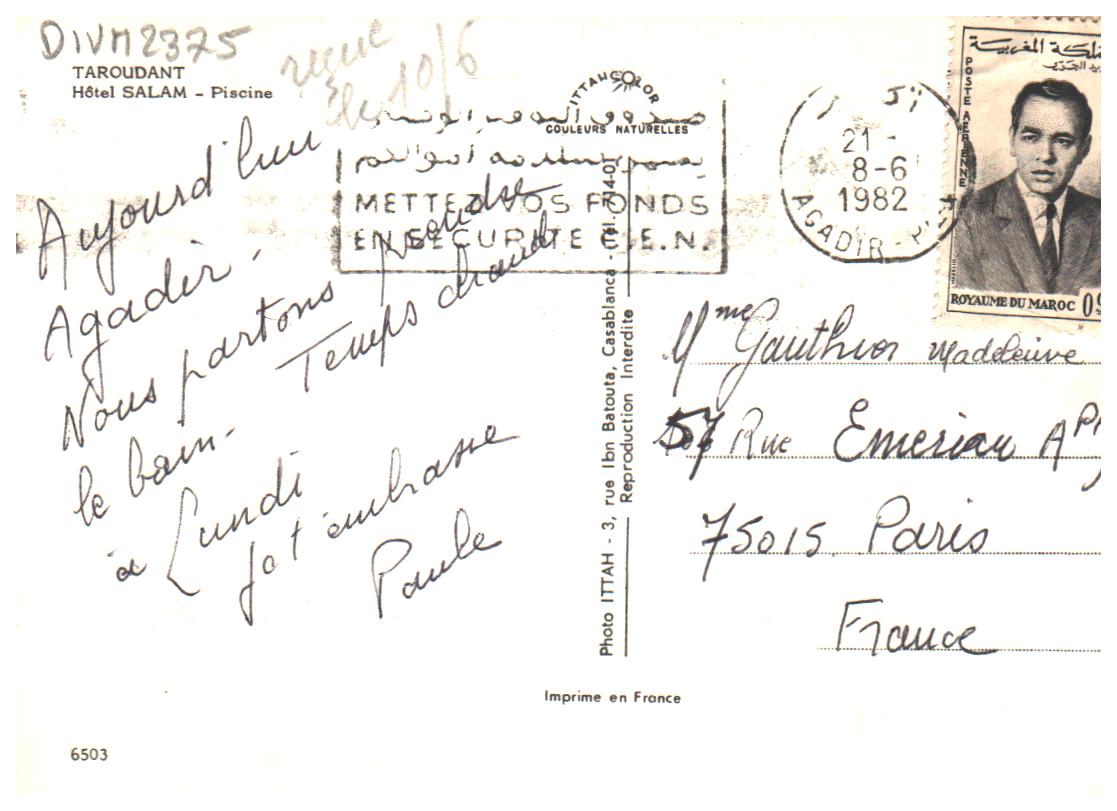 DIVM2375
TAROUDANT
Hôtel SALAM - Piscine
reçue
le 10/6
ITTAHCOLOR
COULEURS NATURELLES
METTEZ VOS FONDS
EN SECURITE C.E.N.
21 -
8-6
1982
AGADIR-P
المملكة المغربية
البريد الجوي
POSTE AERIENNE
ROYAUME DU MAROC 0.9
Aujourd'hui
Agadir -
Nous partons prendre
le bain - Temps chaud
à Lundi
je t'embrasse
Paule
Photo ITTAH - 3, rue Ibn Batouta, Casablanca - Tél. 74-0
Reproduction Interdite
Mme Gauthier Madeleine
57 Rue Emeriau App
75015 Paris
France
Imprime en France
6503